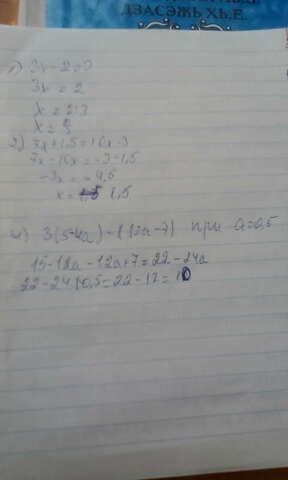 ДЗАСЭЖЬ ХЬ.Е.
1) 3x - 2 = 0
3x = 2
x = 2:3
x =
2) 7x + 1,5 = 10x - 3
7x - 10x = -3 - 1,5
-3x = - 4,5
x = 1,5
4) 3(5-4a) - (12a - 7) при a=0,5
15 - 12a - 12a + 7 = 22 - 24a
22 - 24 · 0,5 = 22 - 12 = 10